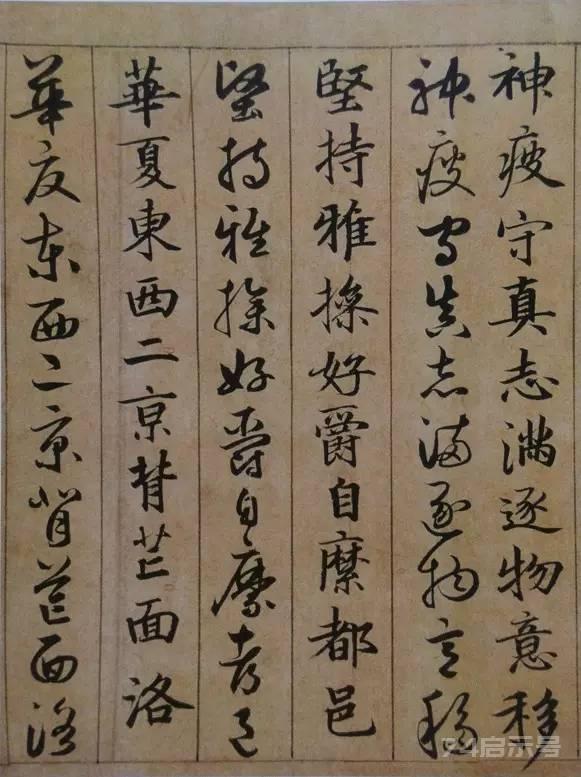 神疲守真志滿逐物意移
神疲守真志滿逐物意移
堅持雅操好爵自縻都邑
堅持雅操好爵自縻都邑
華夏東西二京背芒面洛
華夏東西二京背芒面洛
启示号